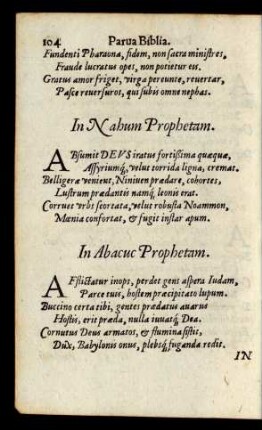 104 Parua Biblia.
Fundenti Pharaona, fidem, non sacra ministres,
Fraude lucratus opes, non potietur eis.
Gratus amor friget, virga pereunte, reuertar,
Pasce reuersuros, qui subis omne nephas.
In Nahum Prophetam.
ABsumit DEVS iratus fortißima quæquæ,
Aßyriumq́, velut torrida ligna, cremat.
Belligeræ venient, Niniuen prædare, cohortes,
Lustrum prædantis namq́, leonis erat.
Corruet vrbs scortata, velut robusta Noammon,
Mœnia confortat, & fugit instar apum.
In Abacuc Prophetam.
AFflictatur inops, perdet gens aspera Iudam,
Parce tuis, hostem præcipitato lupum.
Buccino certa tibi, gentes prædatus auarus
Hostis, erit præda, nulla iuuatq́ Dea.
Cornutus Deus armatos, & flumina sistit,
Dux, Babylonis onus, plebsq́ fuganda redit.
IN